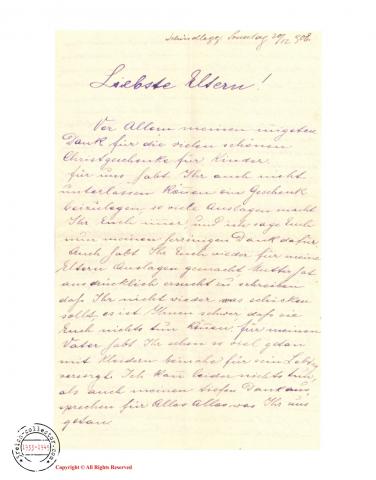 Schindlegg Sonntag 20/12 908.
Liebste Eltern!
Vor Allem meinen innigsten
Dank für die vielen schönen
Christgeschenke für Kinder.
für uns habt Ihr auch nicht
unterlassen können ein Geschenk
beizulegen, so viele Auslagen macht
Ihr Euch immer, und ich sage Euch
nun meinen herzinnigen Dank dafür
Auch habt Ihr Euch wieder für meine
Eltern Auslagen gemacht Mutter hat
ausdrücklich ersucht zu schreiben
daß Ihr nicht wieder was schicken
sollt, es ist Ihnen schwer daß sie
Euch nichts tun können, für meinen
Vater habt Ihr schon so viel getan
mit Kleidern beinahe für sein Lebtag
versorgt. Ich kann leider nichts tun,
als auch meinen tiefen Dank aus
sprechen für Alles Alles was Ihr uns
getan
dreich-collector.com
1933-1945
Copyright © All Rights Reserved